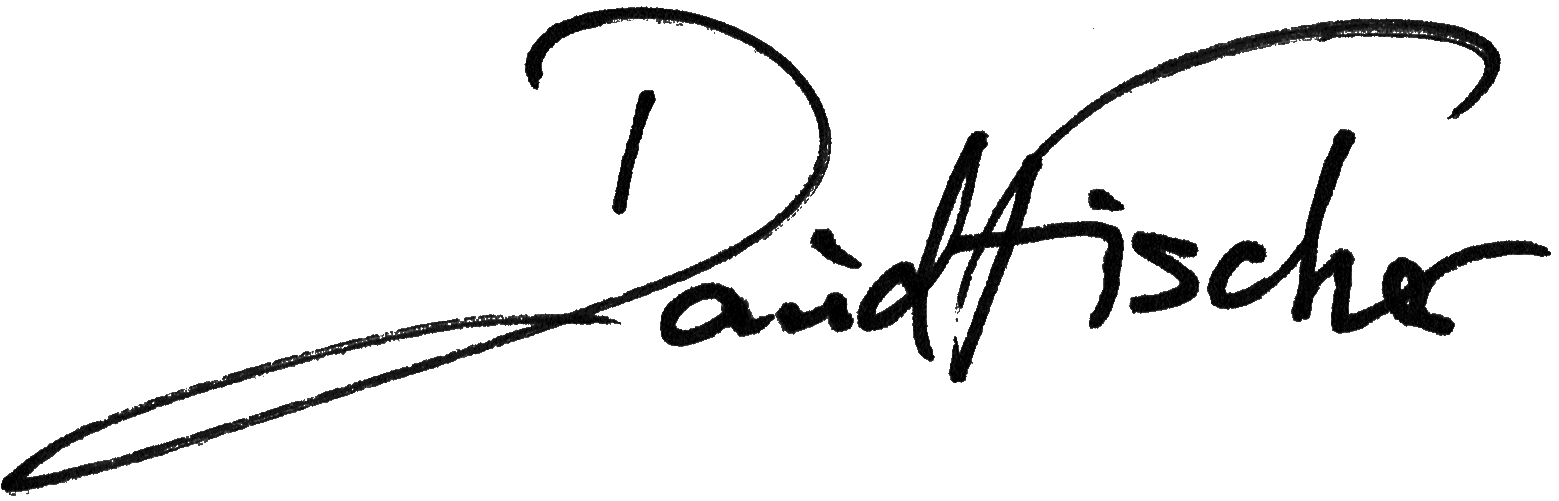 David Fischer